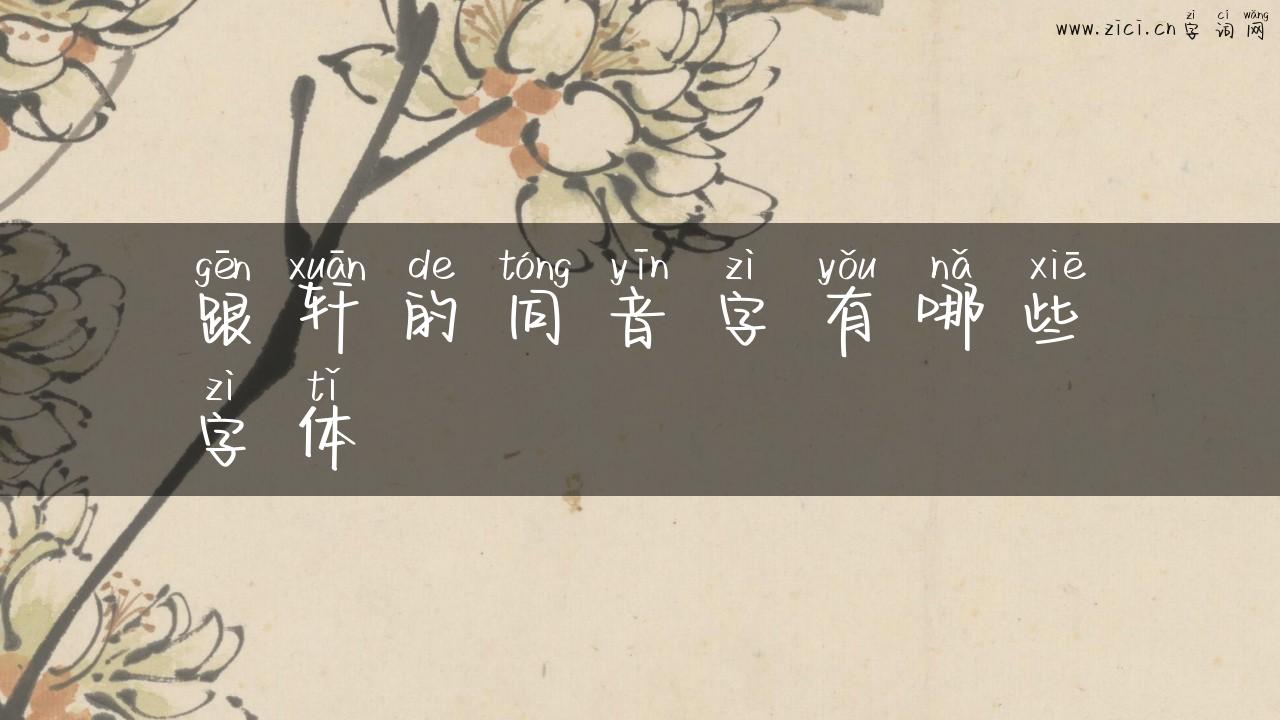 zì cí wǎng
www.zici.cn 字 词 网
gēn xuān de tóng yīn zì yǒu nǎ xiē
跟 轩 的 同 音 字 有 哪 些
zì tǐ
字 体